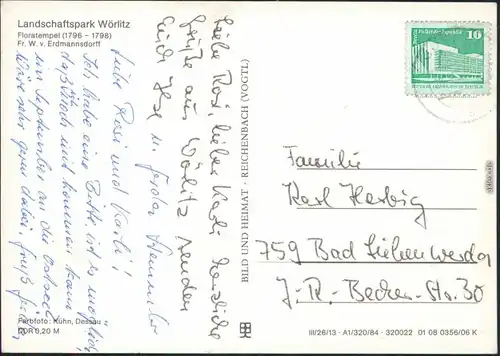 Landschaftspark Wörlitz
Floratempel (1796 - 1798)
Fr. W. v. Erdmannsdorff
Liebe Rosi, lieber Karli herzliche
Grüße aus Wörlitz senden
Euch Ilse u.
Liebe Rosi und Karli!
Ich habe eine Bitte ist es möglich,
daß und kommen kann
im September an die Ostsee
Wäre sehr gern dabei. Gruß
Farbfoto: Kühn, Dessau
DDR 0,20 M
BILD UND HEIMAT · REICHENBACH (VOGTL.)
10
Familie
Karl Herbig
759 Bad Liebenwerda
J.-R.-Becher-Str. 30
III/26/13 · A1/320/84 · 320022 01 08 0356/06 K